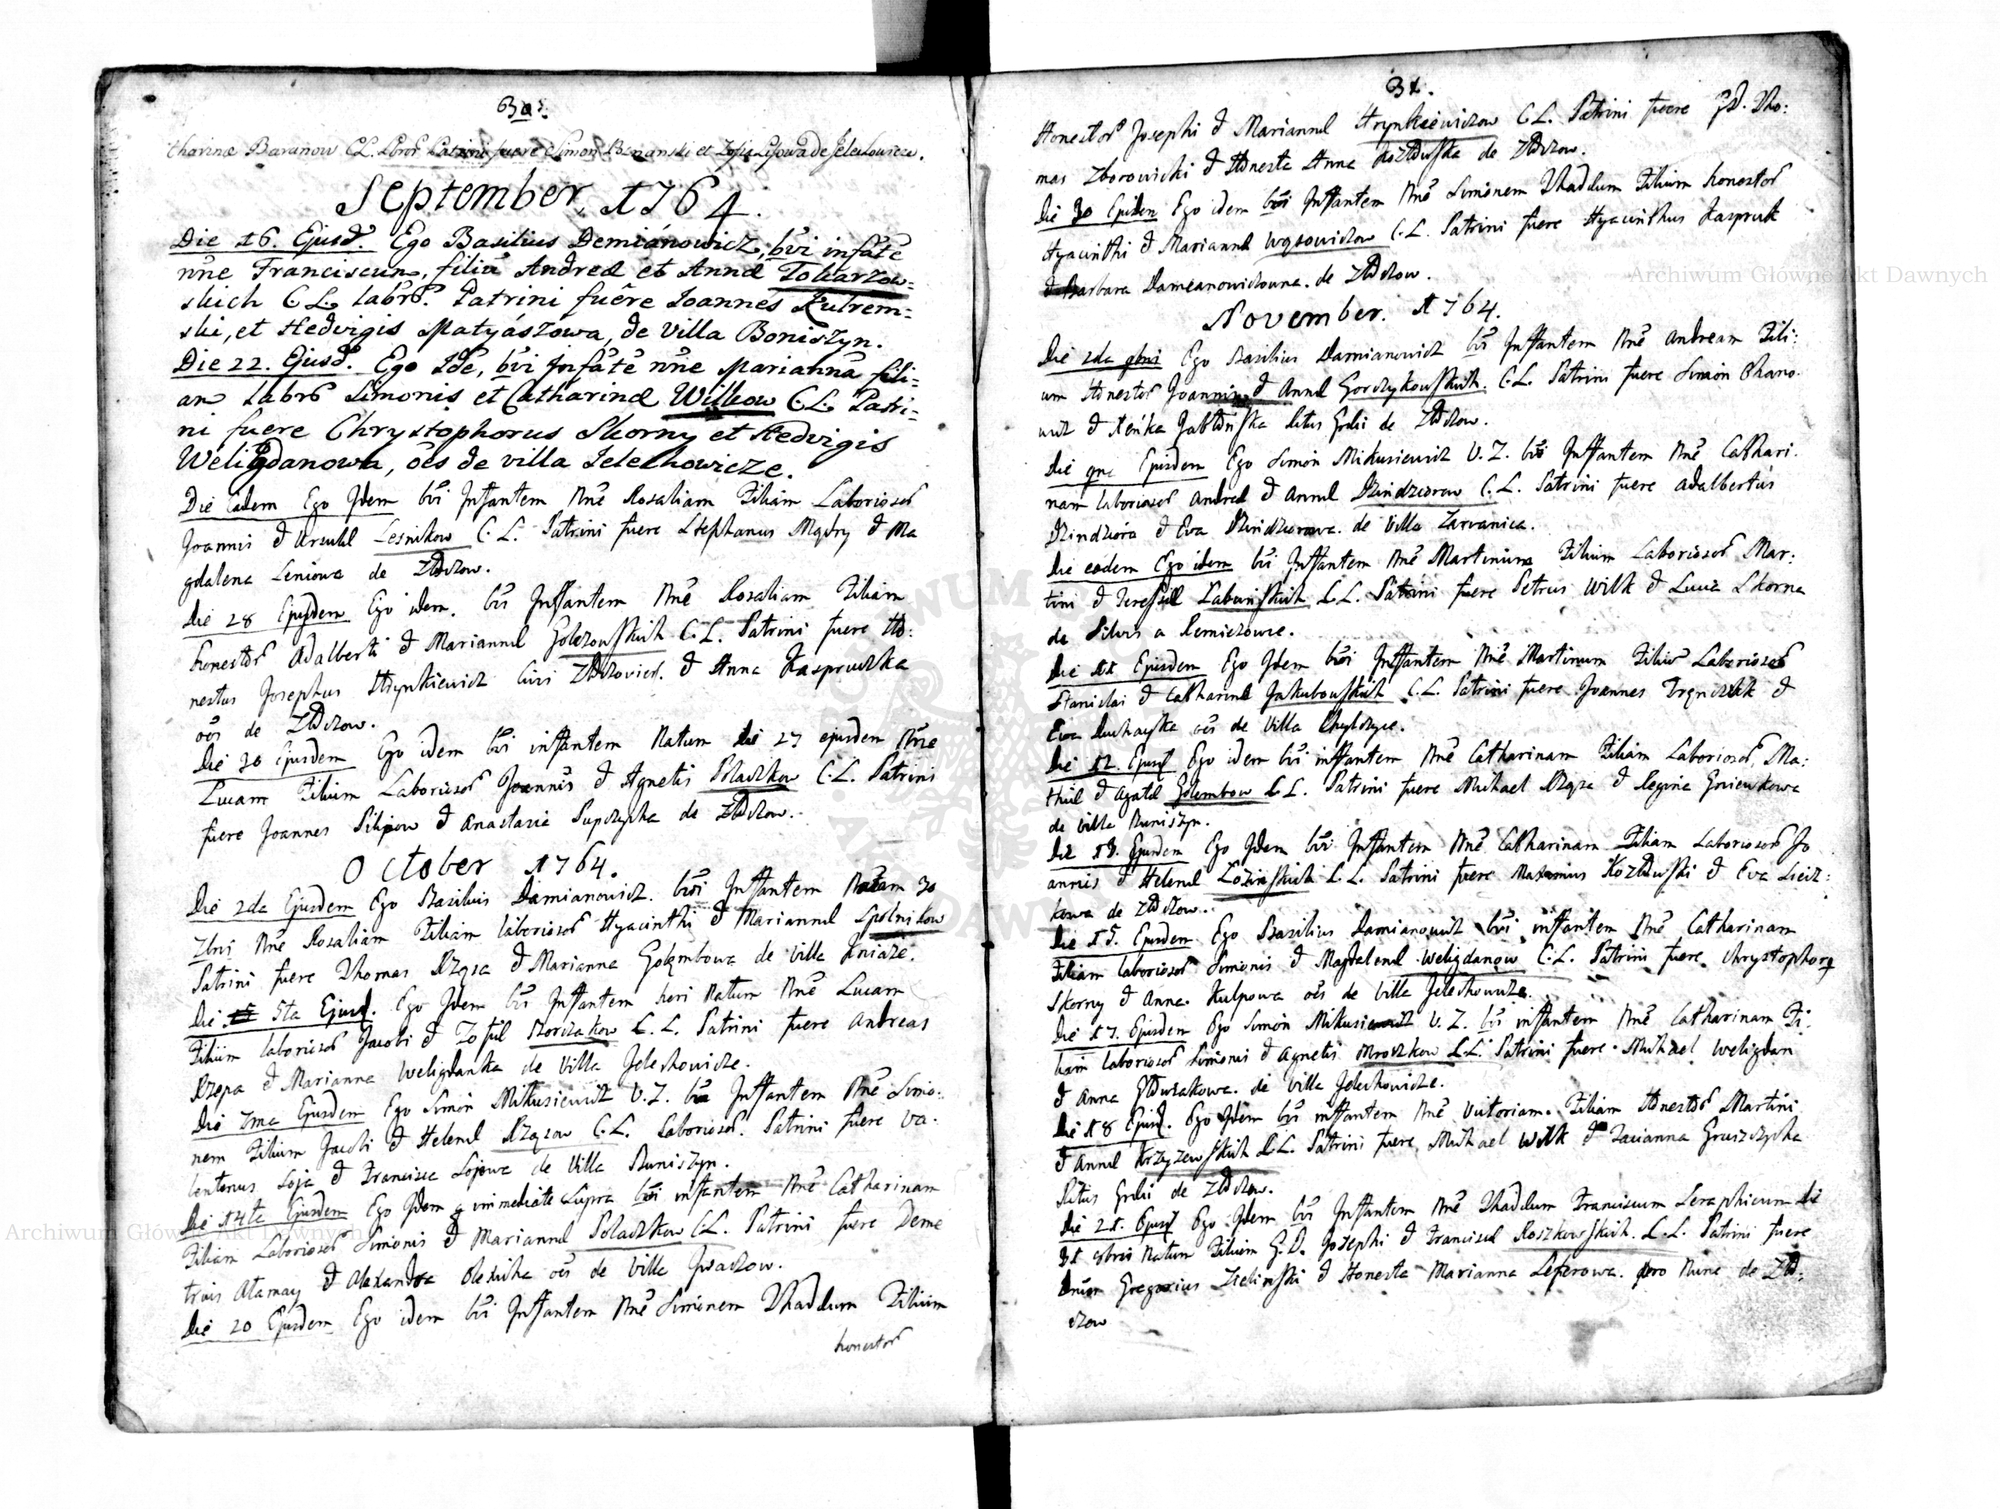 30.
tharinæ Baranow C.L. Labor. Patrini fuere Simon et Zofia de Jelechowicze.
September. 1764.
Die 16. Ejusd. Ego Basilius Demiánowicz, bvi infãtẽ
nñe Franciscum, filiũ Andreæ et Annæ Tokarzow-
skich C L. labrs. Patrini fuẽre Joannes Kutrem-
ski, et Hedvigis Matyászowa, de Villa Boniszyn.
Die 22. Ejusd. Ego Idẽ, bvi Infãtẽ nñe Mariannã fili-
am Labrs Simonis et Catharinæ Wilkow C L. Patri-
ni fuere Chrystophorus Skorny et Hedvigis
Weligdanowa, oẽs de villa Jelechowicze.
Die eadem Ego Idem bvi Infantem Nñe Rosaliam Filiam Laborioso₹
Joannis & Ursulæ Lesnikow C. L. Patrini fuere Stephanus Mądry & Ma
gdalena Leniowa de Złoczow.
Die 28 Ejusdem Ego idem. bvi Infantem Nñe Rosaliam Filiam
honesto₹ Adalberti & Mariannæ Golczowskich C. L. Patrini fuere Ho:
nestus Josephus Hrynkiewicz Civis Złoczovien. & Anna Kaspruczka
oẽs de Złoczow.
Die 30 Ejusdem Ego idem bvi infantem Natum die 27 ejusdem Nñe
Lucam Filium Laborioso₹ Joannis & Agnetis Poladzkow C. L. Patrini
fuere Joannes Filipow & Anastasia Supczycha de Złoczow.
October 1764.
Die 2da Ejusdem Ego Basilius Damianowicz. bvi Infantem Natam 30
7bris Nñe Rosaliam Filiam laborioso₹ Hyacinthi & Mariannæ Spolnikow
Patrini fuere Thomas Rząsa & Marianna Gołęmbowa de Villa Kniaże.
Die 5ta Ejusd. Ego Idem bvi Infantem heri Natum Nñe Lucam
Filium laborioso₹ Jacobi & Zofiæ C. L. Patrini fuere Andreas
Rzepa & Marianna Weligdanka de Villa Jelechowicze.
Die 7ma Ejusdem Ego Simon Mikusiewicz V. Z. bvi Infantem Nñe Simo:
nem Filium Jacobi & Helenæ Rząsow C. L. Laborioso₹. Patrini fuere Va:
lentinus Soja & Francisca Sojowa de Villa Buniszyn.
Die 14ta Ejusdem Ego Idem q immediate Supra bvi infantem Nñe Catharinam
Filiam Laborioso₹ Simonis & Mariannæ Poladzkow C L. Patrini fuere Deme
trius Atamay & Alexandra Olexicha oẽs de Villa
Die 20 Ejusdem Ego idem bvi Infantem Nñe Simonem Thaddum Filium
honesto₹
31.
Honesto₹ Josephi & Mariannæ Hrynkiewiczow C. L. Patrini fuere Tho:
mas Zborowicki & Honesta Anna Kozłowska de Złoczow.
Die 30 Ejusdem Ego idem bvi Infantem Nñe Simonem Thaddum Filium honesto₹
Hyacinthi & Mariannæ Wąsowiczow C. L. Patrini fuere Hyacinthus Kaspruk
& Barbara Dameanowiczowna. de Złoczow.
November. 1764.
Die 2da 9bris Ego Basilius Damianowicz bvi Infantem Nñe Andream Fili:
um Honesto₹ Joannis & Annæ Gorczykowskich. C. L. Patrini fuere Simon Ohano
wicz & Jabłońska Ritus Græci de Złoczow.
Die Ejusdem Ego Simon Mikusiewicz V. Z. bvi Infantem Nñe Cathari
nam laborioso₹ Andreæ & Annæ Dzindziorow C. L. Patrini fuere Adalbertus
Dzindziora & Eva Dzindziorowa. de Villa Zarvanica.
Die eodem Ego idem bvi Infantem Nñe Martinum Filium Laborioso₹ Mar:
tini & Teressiæ C. L. Patrini fuere Petrus Wilk & Lucia Skorna
de Silvis a Remiezowce.
Die 11 Ejusdem Ego Idem bvi Infantem Nñe Martinum Filium Laborioso₹
Stanislai & Catharinæ Jakubowskich C. L. Patrini fuere Joannes &
Eva oẽs de Villa Chylczyce.
Die 12. Ejusd Ego idem bvi infantem Nñe Catharinam Filiam Laborioso₹. Ma:
thiæ & Agatæ Golembow C L. Patrini fuere Michael Rząsa & Regina Gniewkowa
de Villa Buniszyn.
Die 13. Ejusdem Ego Idem bvi Infantem Nñe Catharinam Filiam Laborioso₹ Jo
annis & Helenæ Łozinskich C. L. Patrini fuere Maximus Kozłowski & Eva
kowa de Złoczow.
Die 15. Ejusdem Ego Basilius Damianowicz bvi infantem Nñe Catharinam
Filiam laborioso₹ Simonis & Magdalenæ Weligdanow C. L. Patrini fuere Chrystophorq
Skorny & Anna Kulpowa oẽs de Villa Jelechowicze.
Die 17. Ejusdem Ego Simon Mikusiewicz V. Z. bvi infantem Nñe Catharinam Fi:
liam laborioso₹ Simonis & Agnetis Mroczkow C L. Patrini fuere Michael Weligdan
& Anna de Villa Jelechowicze.
Die 18 Ejusd. Ego Idem bvi infantem Nñe Victoriam. Filiam Honesto₹ Martini
& Annæ Krzyzewskich C L. Patrini fuere Michael Wilk & Marianna Gruszczycka
Ritus Græci de Złoczow.
Die 21. Ejusd Ego Idem bvi Infantem Nñe Thaddum Franciscum Seraphicum Die
31 8bris Natum Filium G. D. Josephi & Franciscæ Roszkowskich. C. L. Patrini fuere
Gregorius Zielinski & Honesta Marianna Leferowa. pro nunc de Zło:
czow